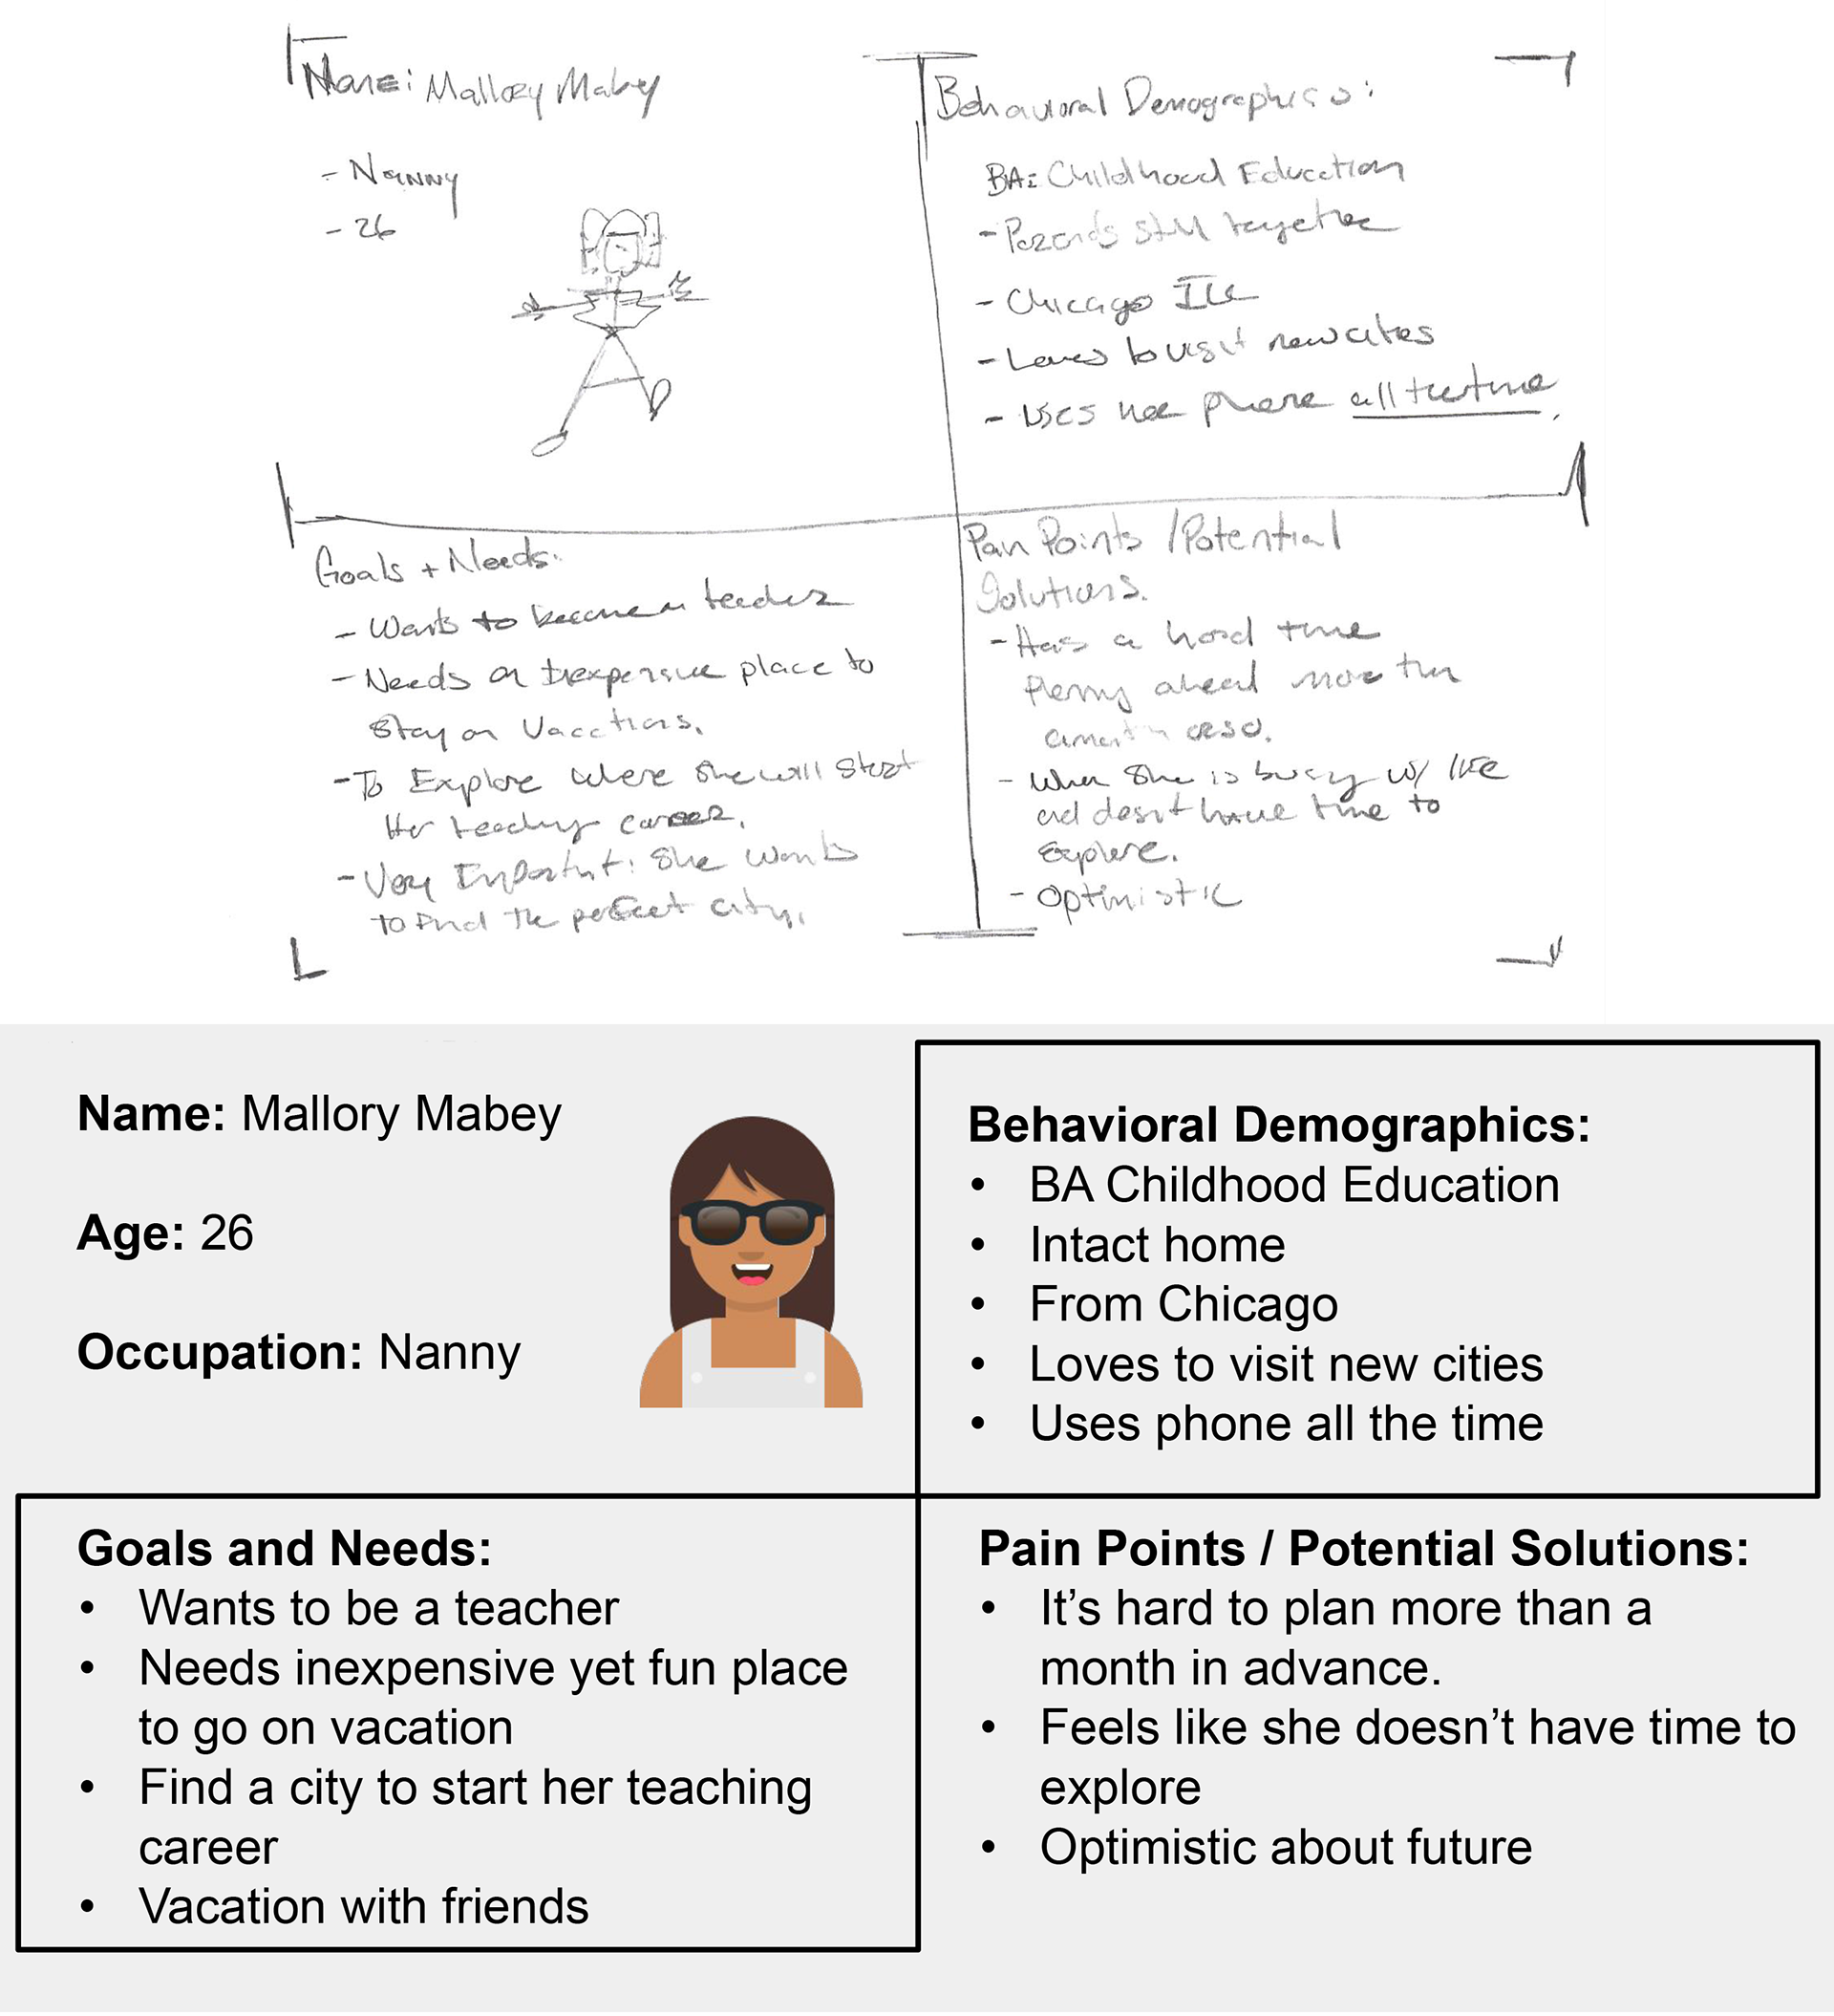 Name: Mallory Mabey
- Nanny
- 26
Behavioral Demographics:
BA: Childhood Education
- Parents still together
- Chicago Ill
- Loves to visit new cities
- Uses her phone all the time.
Goals + Needs:
- Wants to become a teacher
- Needs an Inexpensive place to
stay on Vacations.
- To Explore where she will start
Her teaching career.
- Very Important: She wants
to find the perfect city.
Pain Points / Potential
Solutions.
- Has a hard time
ahead more than
a month
- When she is busy w/ life
and doesn't have time to
explore.
- Optimistic
Name: Mallory Mabey
Age: 26
Occupation: Nanny
Behavioral Demographics:
• BA Childhood Education
• Intact home
• From Chicago
• Loves to visit new cities
• Uses phone all the time
Goals and Needs:
• Wants to be a teacher
• Needs inexpensive yet fun place
to go on vacation
• Find a city to start her teaching
career
• Vacation with friends
Pain Points / Potential Solutions:
• It’s hard to plan more than a
month in advance.
• Feels like she doesn’t have time to
explore
• Optimistic about future